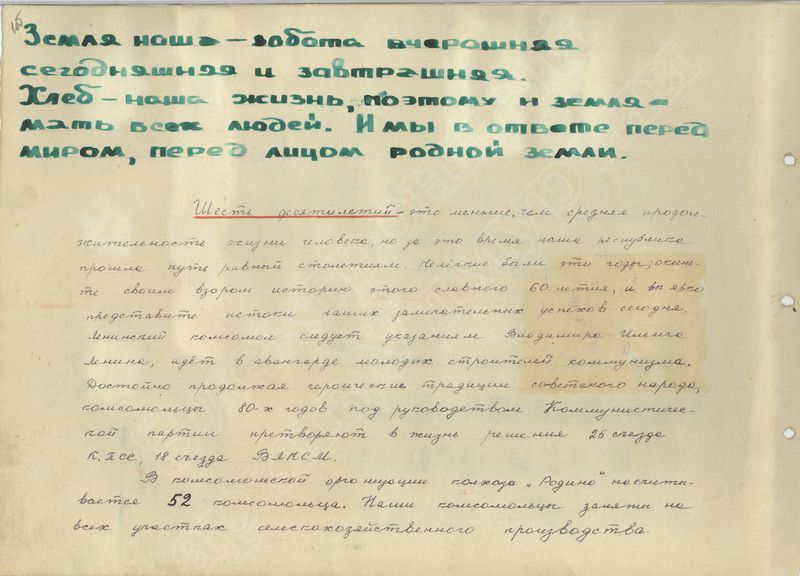 Земля наша – забота вчерашняя
сегодняшняя и завтрашняя.
Хлеб – наша жизнь, поэтому и земля –
мать всех людей. И мы в ответе перед
миром, перед лицом родной земли.
Шесть десятилетий – это меньше, чем средняя продол-
жительность жизни человека, но за это время наша республика
прошла путь равный столетиям. Нелёгкие были эти годы; окинь-
те своим взором историю этого славного 60-летия, и вы ярко
представите истоки наших замечательных успехов сегодня.
Ленинский комсомол следует указаниям Владимира Ильича
Ленина, идёт в авангарде молодых строителей коммунизма.
Достойно продолжая героические традиции советского народа,
комсомольцы 80-х годов под руководством Коммунистичес-
кой партии претворяют в жизнь решения 26 съезда
КПСС, 18 съезда ВЛКСМ.
В комсомолской организации колхоза „Родина" насчиты-
вается 52 комсомольца. Наши комсомольцы заняты на
всех участках сельскохозяйственного производства.